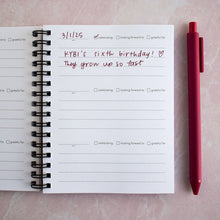 3/1/25 celebrating looking forward to grateful for
KTBI's sixth birthday! ♡
They grow up so fast
celebrating looking forward to grateful for
celebrating looking forward to grateful for
celebrating looking forward to grateful for